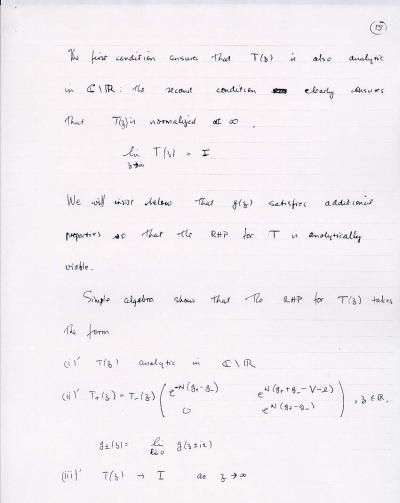 (15)
The first condition ensures that T(z) is also analytic
in ℂ\ℝ: the second condition clearly ensures
that T(z) is normalized at ∞.
lim_{z→∞} T(z) = I
We will insist below that g(z) satisfies additional
properties so that the RHP for T is analytically
viable.
Simple algebra shows that the RHP for T(z) takes
the form
(i)' T(z) analytic in ℂ\ℝ
(ii)' T₊(z) = T₋(z) ( e^{-N(g₊-g₋)} e^{N(g₊+g₋-V-l)} ; 0 e^{N(g₊-g₋)} ), z∈ℝ,
g±(z) = lim_{ε↓0} g(z±iε)
(iii)' T(z) → I as z→∞